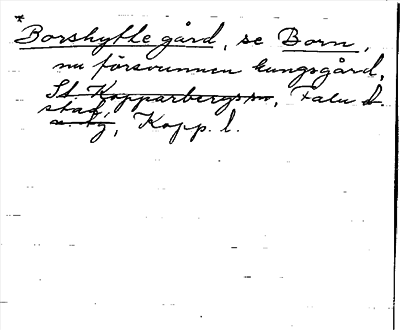 *
Borshytte gård, se Born,
nu försvunnen kungsgård,
St. Kopparbergs sn, Falu
stad,
Kopp. l.